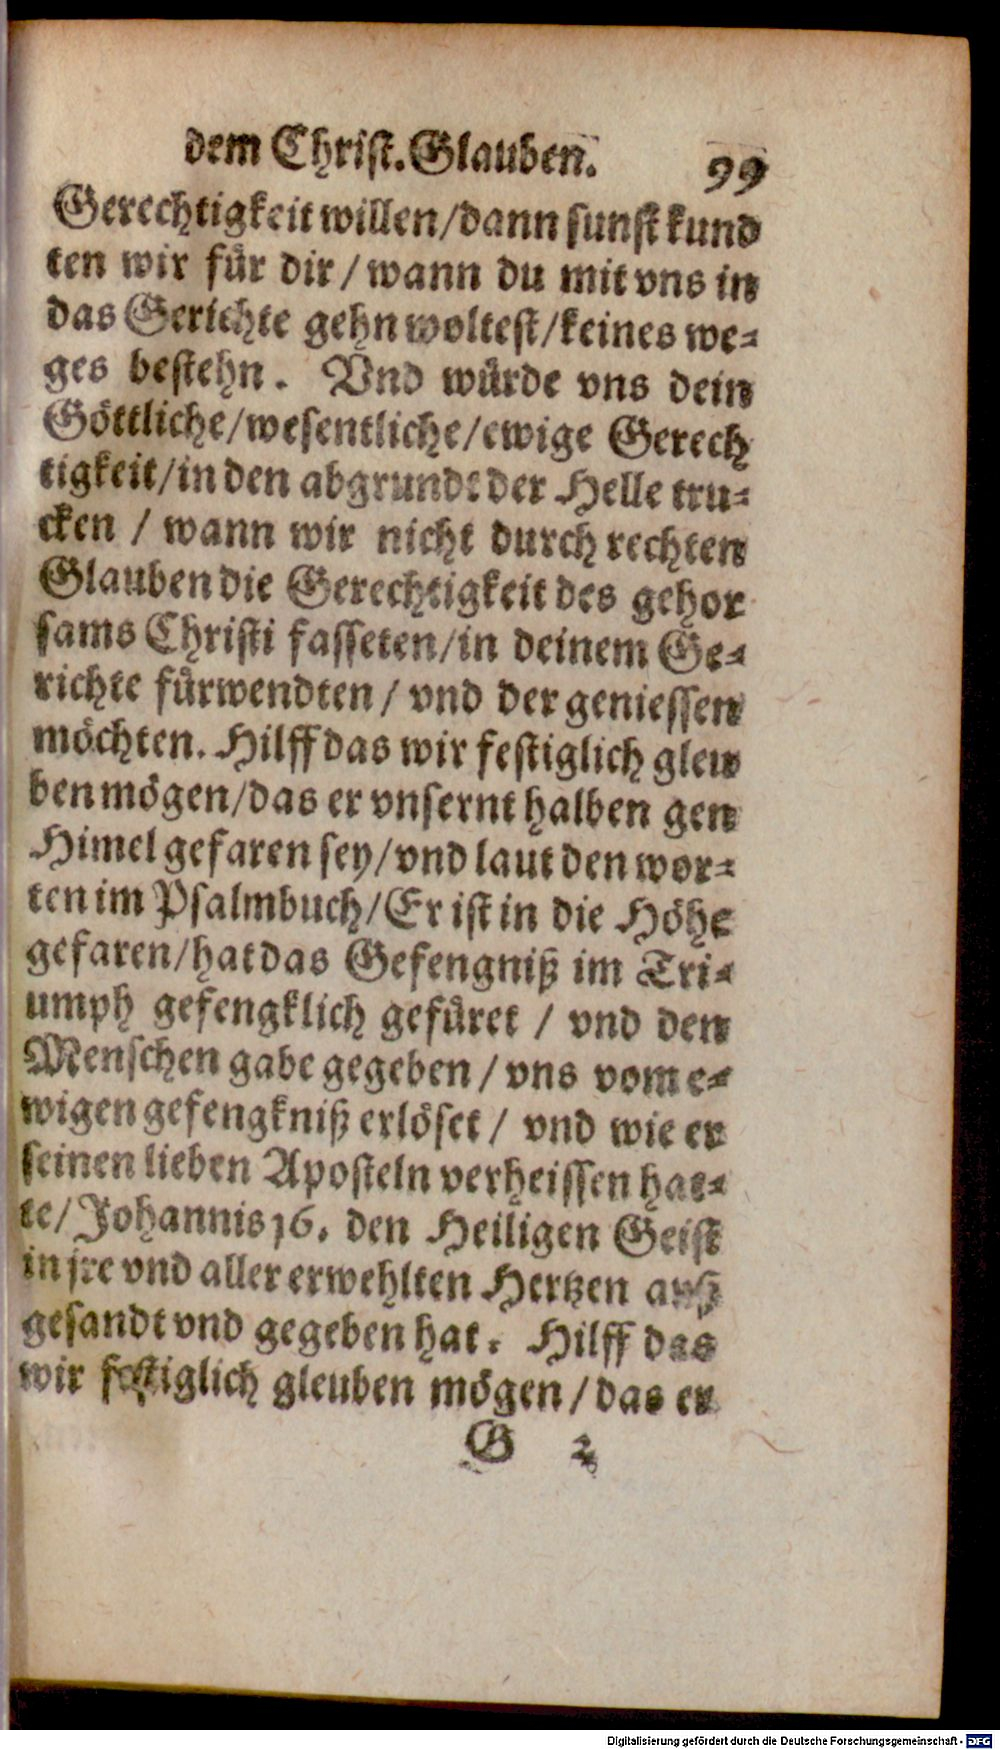 dem Christ. Glauben. 99
Gerechtigkeit willen/dann sunst kund
ten wir für dir/wann du mit vns in
das Gerichte gehn woltest/keines we-
ges bestehn. Vnd würde vns dein
Göttliche/wesentliche/ewige Gerech
tigkeit/in den abgrundt der Helle tru-
cken/wann wir nicht durch rechten
Glauben die Gerechtigkeit des gehor
sams Christi fasseten/in deinem Ge-
richte fürwendten/vnd der geniessen
möchten. Hilff das wir festiglich gleu
ben mögen/das er vnsernt halben gen
Himel gefaren sey/vnd laut den wor-
ten im Psalmbuch/Er ist in die Höhe
gefaren/hat das Gefengniß im Tri-
umph gefengklich gefüret/vnd den
Menschen gabe gegeben/vns vom e-
wigen gefengkniß erlöset/vnd wie er
seinen lieben Aposteln verheissen hat-
te/Johannis 16. den Heiligen Geist
in jre vnd aller erwehlten Hertzen auß
gesandt vnd gegeben hat. Hilff das
wir festiglich gleuben mögen/das er
G 2
Digitalisierung gefördert durch die Deutsche Forschungsgemeinschaft - DFG